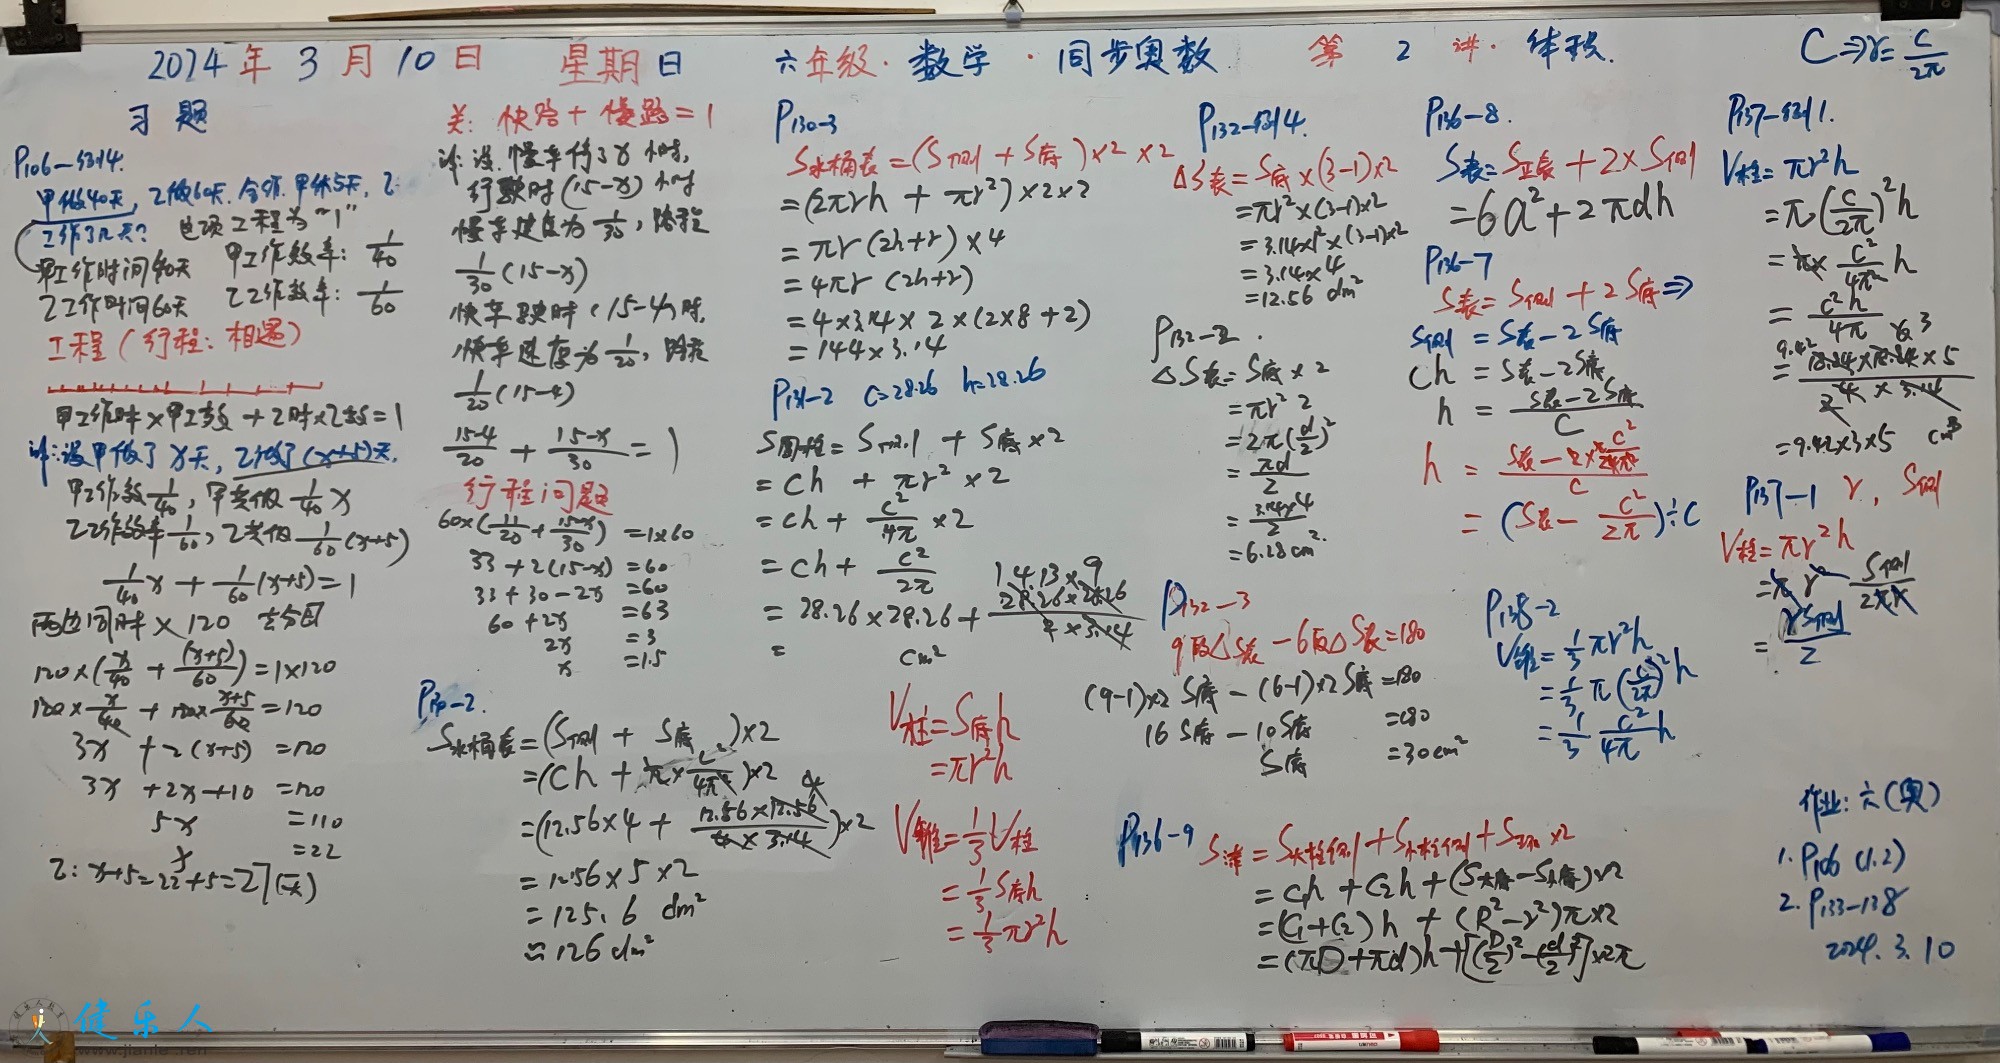 2024年3月10日 星期日 六年级·数学·同步奥数 第2讲·体积.
C⇒r=C/2π
习题
P106-例4.
甲做40天,乙做60天.合作.甲休5天,乙
工作了几天? 这项工程为"1"
甲工作时间40天 甲工作效率: 1/40
乙工作时间60天 乙工作效率: 1/60
工程(行程:相遇)
甲工作时×甲工效+乙时×乙效=1
详:设甲做了x天,乙做了(x+5)天.
甲工作效1/40,甲共做1/40 x
乙工作效率1/60,乙共做1/60(x+5)
1/40 x + 1/60(x+5)=1
两边同时×120 去分母
120×(x/40 + (x+5)/60)=1×120
120×x/40 + 120×(x+5)/60=120
3x +2(x+5) =120
3x +2x+10 =120
5x =110
x =22
乙:x+5=22+5=27(天)
关:快路+慢路=1
详:设.慢车停了x小时,
行驶时(15-x)小时
慢车速度为1/30,路程
1/30(15-x)
快车驶时(15-4)时.
快车速度为1/20,路程
1/20(15-4)
(15-4)/20 + (15-x)/30 = 1
行程问题
60×(11/20+(15-x)/30) =1×60
33+2(15-x) =60
33+30-2x =60
60+2x =63
2x =3
x =1.5
P130-2.
S水桶表=(S侧 + S底)×2
=(Ch + π×C²/4π²)×2
=(12.56×4 + 12.56×12.56/4×3.14)×2
=12.56×5×2
=125.6 dm²
≈126dm²
P130-3
S水桶表=(S侧+S底)×2×2
=(2πrh + πr²)×2×2
=πr(2h+r)×4
=4πr(2h+r)
=4×3.14×2×(2×8+2)
=144×3.14
P131-2 C=28.26 h=28.26
S圆柱=S侧 + S底×2
=Ch + πr²×2
=Ch+ C²/4π ×2
=Ch+ C²/2π
14.13×9
=28.26×28.26+ 28.26×28.26/2×3.14
= cm²
V柱=S底h
=πr²h
V锥=1/3V柱
=1/3S底h
=1/3πr²h
P132-例4.
△S表=S底×(3-1)×2
=πr²×(3-1)×2
=3.14×1²×(3-1)×2
=3.14×4
=12.56 dm²
P132-2.
△S表=S底×2
=πr² 2
=2π(d/2)²
=πd/2
=3.14×4/2
=6.28cm².
P132-3
9段△S表-6段△S表=180
(9-1)×2S底-(6-1)×2S底=180
16S底-10S底 =180
S底 =30cm²
P136-8.
S表=S正表+2×S侧
=6a²+2πdh
P136-7
S表=S侧+2S底⇒
S侧=S表-2S底
Ch=S表-2S底
h=(S表-2S底)/C
h=(S表-2×C²/4π)/C
=(S表-C²/2π)÷C
P138-2
V锥=1/3πr²h
=1/3π(C/2π)²h
=1/3 C²/4π h
P136-9 S漆=S大柱侧+S小柱侧+S环×2
=C₁h+C₂h+(S大底-S小底)×2
=(C₁+C₂)h+(R²-r²)π×2
=(πD+πd)h+[(D/2)²-(d/2)²]×2π
P137-例1.
V柱=πr²h
=π(C/2π)²h
=π×C²/4π² h
=C²h/4π
=18.84×18.84×5/4×3.14
=9.42×3×5 cm³
P137-1 r, S侧
V柱=πr²h
=πr² S侧/2πr
=rS侧/2
作业:六(奥)
1.P106(1.2)
2.P133-138
2024.3.10
健乐人
www.jianle.ren